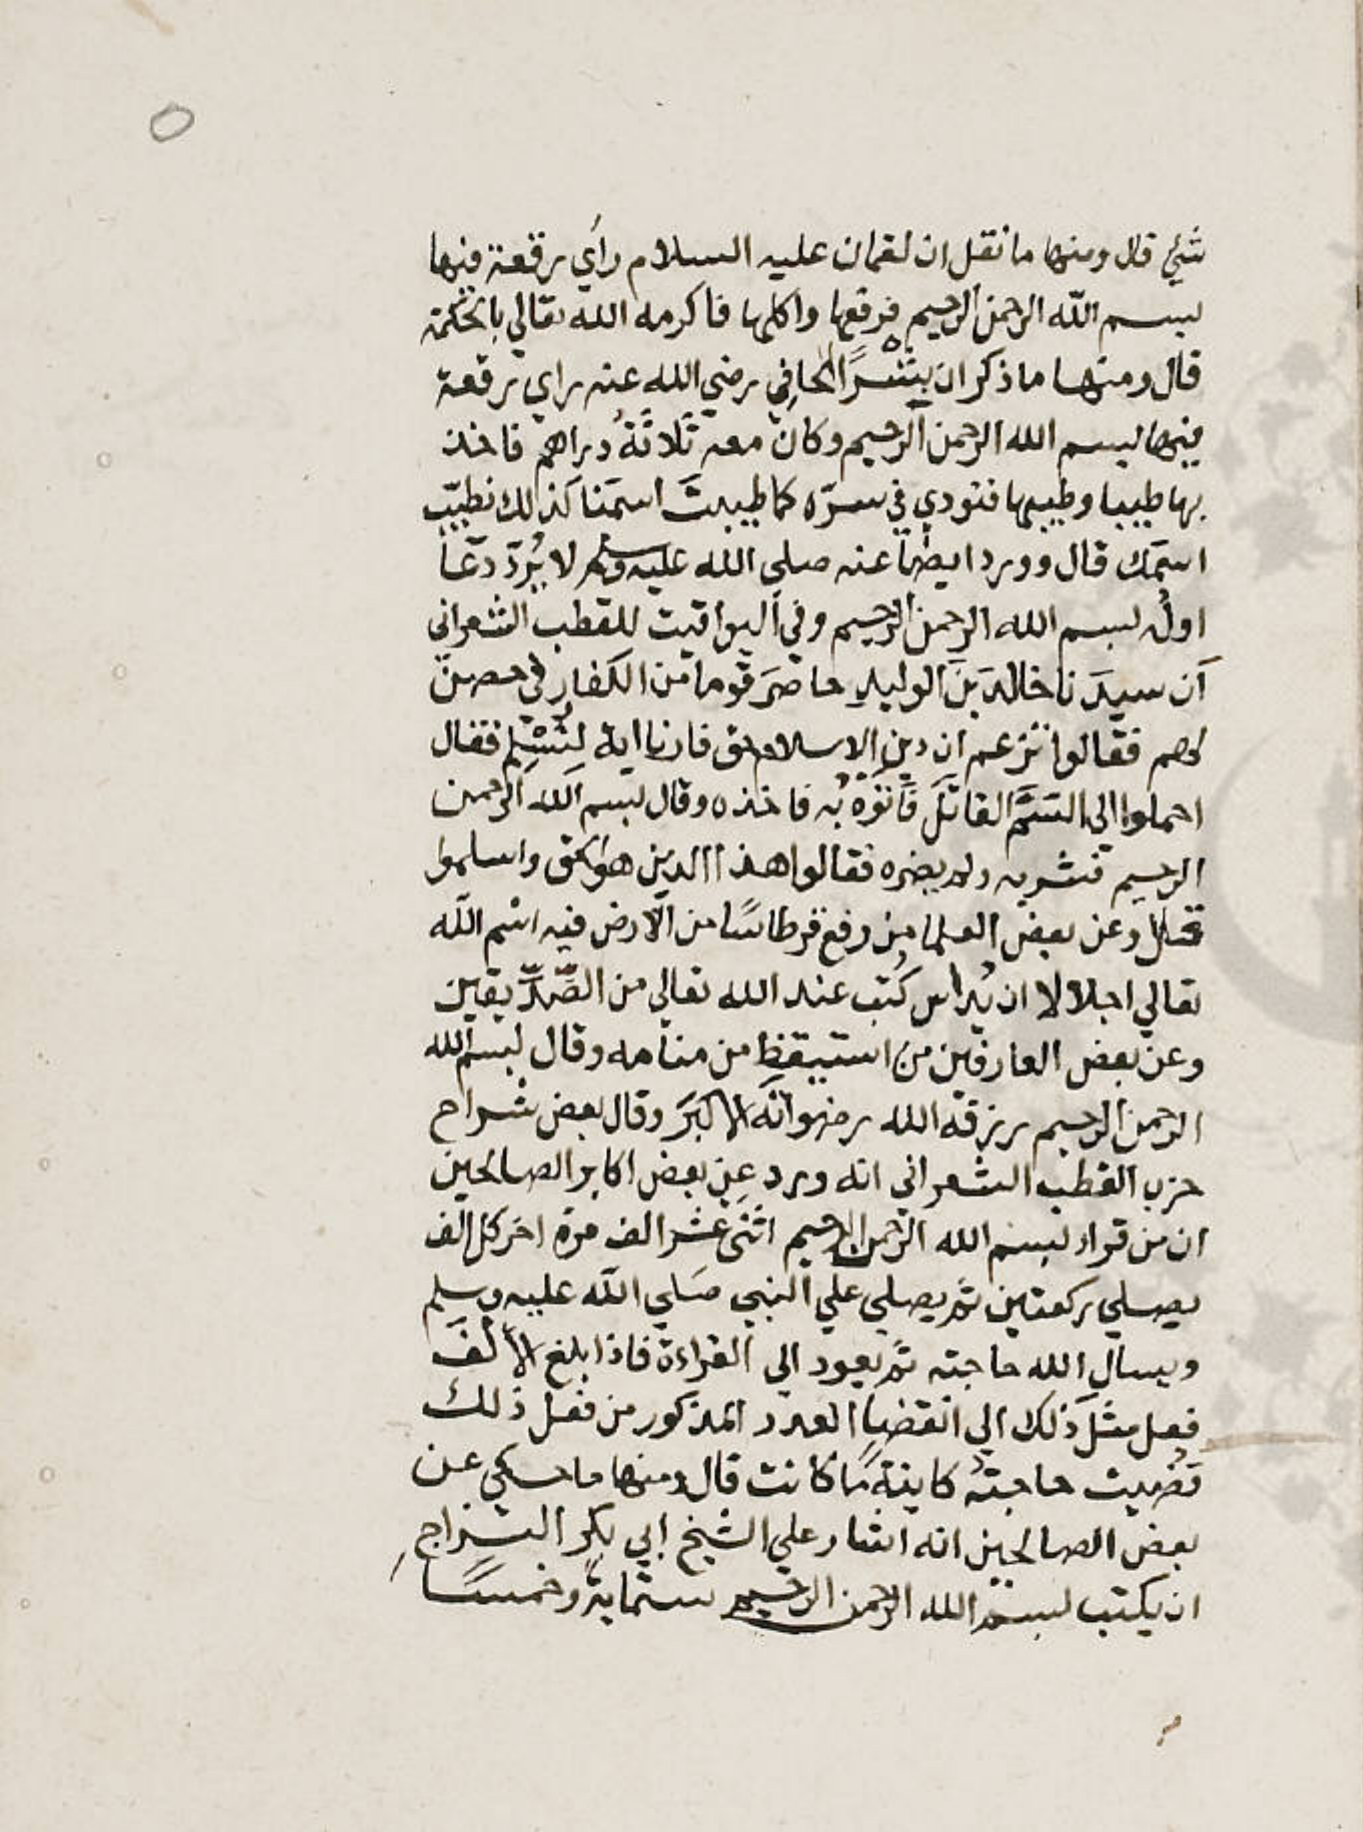 شيئ قال ومنها ما نقل ان لقمان عليه السلام رأي رقعة فيها
بسم الله الرحمن الرحيم فرفعها واكلها فاكرمه الله تعالي بالحكمة
قال ومنها ما ذكر ان بِشْرًا الحافِي رضي الله عنه راي رقعة
فيها بسم الله الرحمن الرحيم وكان معه ثَلَاثَةُ دراهم فاخذ
بها طيبا وطيبها فنودي في سره كما طيبتَ اسمَنا كذلك نطيّب
اسمَك قال وورد ايضا عنه صلي الله عليه وسلم لا يُرَدّ دعا
اولُه بسم الله الرحمن الرحيم وفي اليواقيت للقطب الشعراني
أن سيدَنا خالدَ بنَ الوليدِ حاصَرَ قوما من الكفار في حصن
لهم فقالوا تزعم ان دين الاسلام حق فارنا اية لِنُسْلِم فقال
احملوا الي السَّمَّ القاتلَ فَأَتَوْهُ به فاخذه وقال بسم الله الرحمن
الرحيم فشربه ولم يضره فقالوا هذا الدين هو الحق واسلموا
وعن بعض العلما من رفع قرطاسًا من الارض فيه اسْم الله
تعالي اجلالا ان يُداس كُتب عند الله تعالي من الصِّدِّيقين
وعن بعض العارفين من استيقظ من منامه وقال بسم الله
الرحمن الرحيم يرزقه الله رضوانَه الاكبَرَ وقال بعض شراح
حزب القطب الشعراني انه ورد عن بعض اكابر الصالحين
ان من قرا بسم الله الرحمن الرحيم اثنَي عشر الف مرة اخر كل الف
يصلي ركعتين ثم يصلي علي النبي صَلي الله عليه وسلم
ويسال الله حاجته ثم يعود الي القراءة فاذا بلغ الألفَ
فعل مثلَ ذلك الي انقضا العدد المذكور من فعل ذلك
قُضيت حاجتُه كاينةً ما كانت قال ومنها ما حكي عن
بعض الصالحين انه اشار علي الشيخ ابي بكر السراج
ان يكتب بسم الله الرحمن الرحيم ستمايةً وخمسًا